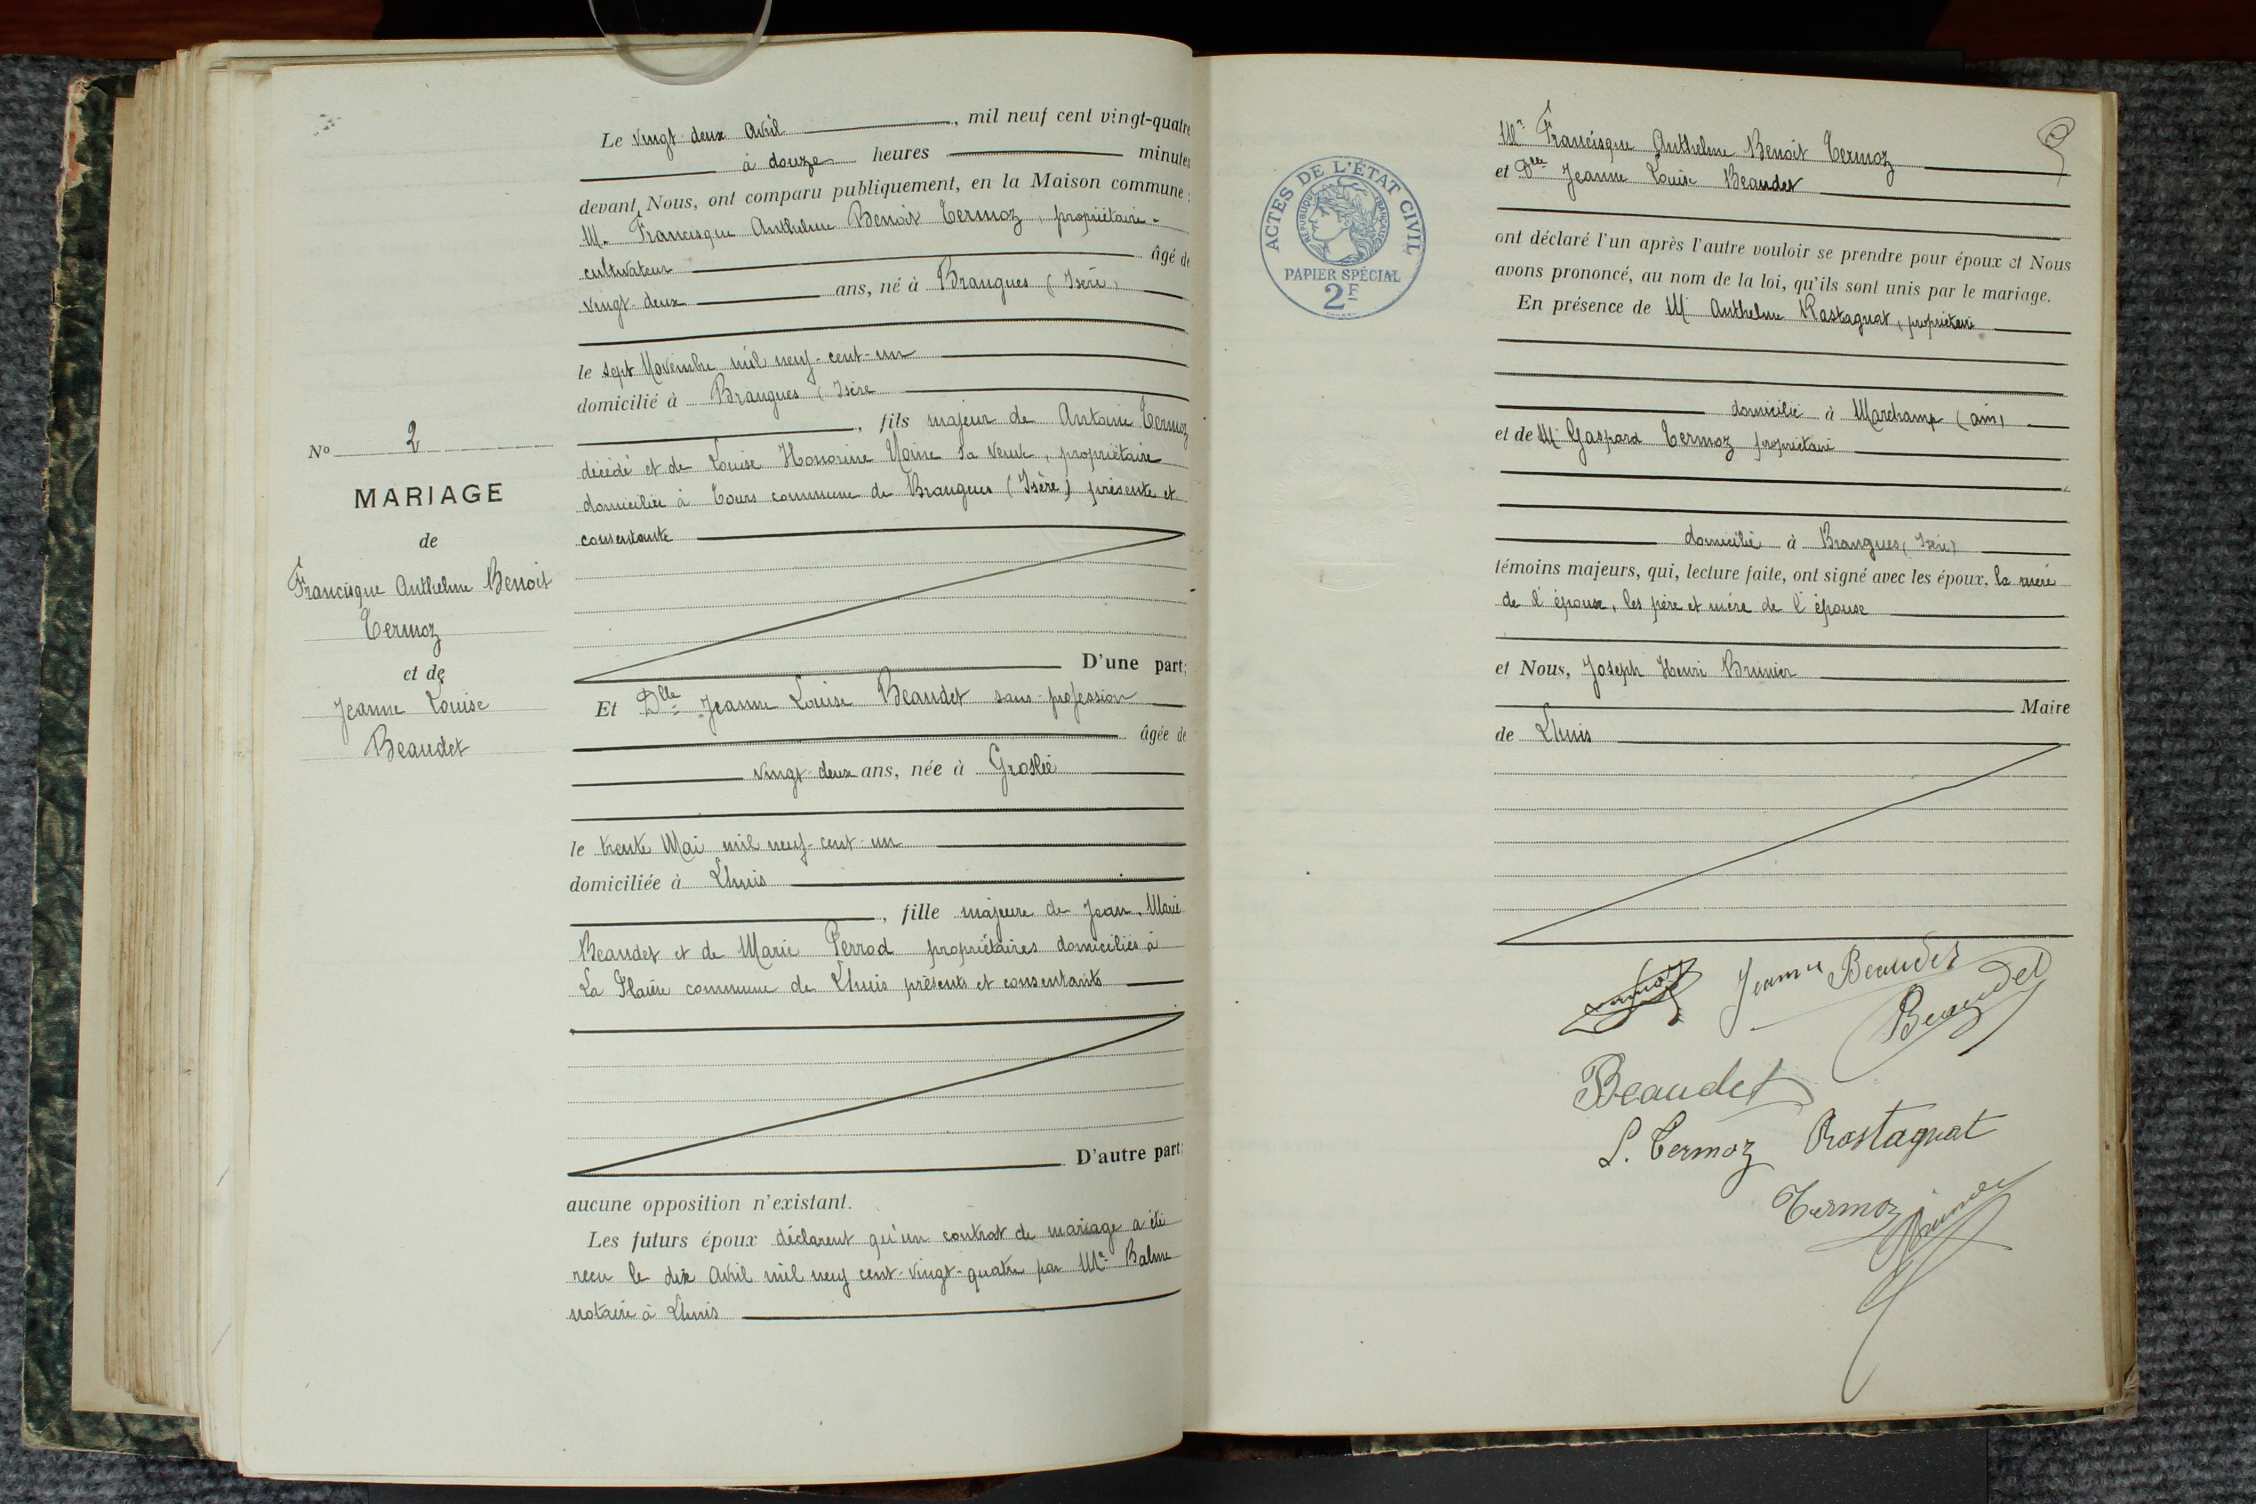 Le vingt-deux Avril, mil neuf cent vingt-quatre
à douze heures minutes
devant Nous, ont comparu publiquement, en la Maison commune :
M. Francisque Anthelme Benoit Termoz, propriétaire-
cultivateur âgé de
vingt-deux ans, né à Brangues (Isère)
le sept Novembre mil neuf-cent-un
domicilié à Brangues (Isère
, fils majeur de Antoine Termoz
décédé et de Louise Honorine sa veuve, propriétaire
domiciliée à Tours commune de Brangues (Isère) présente et
consentante
No 2
MARIAGE
de
Francisque Anthelme Benoit
Termoz
et de
Jeanne Louise
Beaudet
D'une part;
Et Dlle Jeanne Louise Beaudet sans profession
âgée de
vingt-deux ans, née à Groslée
le trente Mai mil neuf-cent-un
domiciliée à Lhuis
, fille majeure de Jean-Marie
Beaudet et de Marie Perrod propriétaires domiciliés à
La commune de Lhuis présents et consentants
D'autre part;
aucune opposition n'existant.
Les futurs époux déclarent qu'un contrat de mariage a été
reçu le dix Avril mil neuf cent-vingt-quatre par Me Balme
notaire à Lhuis
ACTES DE L'ÉTAT CIVIL
RÉPUBLIQUE FRANÇAISE
PAPIER SPÉCIAL
2F
Mr Francisque Anthelme Benoit Termoz
et Dlle Jeanne Louise Beaudet
ont déclaré l'un après l'autre vouloir se prendre pour époux et Nous
avons prononcé, au nom de la loi, qu'ils sont unis par le mariage.
En présence de M Anthelme Rostagnat, propriétaire
domicilié à Marchamp (ain)
et de M Gaspard Termoz propriétaire
domicilié à Brangues (Isère)
témoins majeurs, qui, lecture faite, ont signé avec les époux, la mère
de l'époux, les père et mère de l'épouse
et Nous, Joseph Henri Brunier
Maire
de Lhuis
Termoz Jeanne Beaudet
Beaudet
Beaudet
L. Termoz Rostagnat
Termoz Brunier